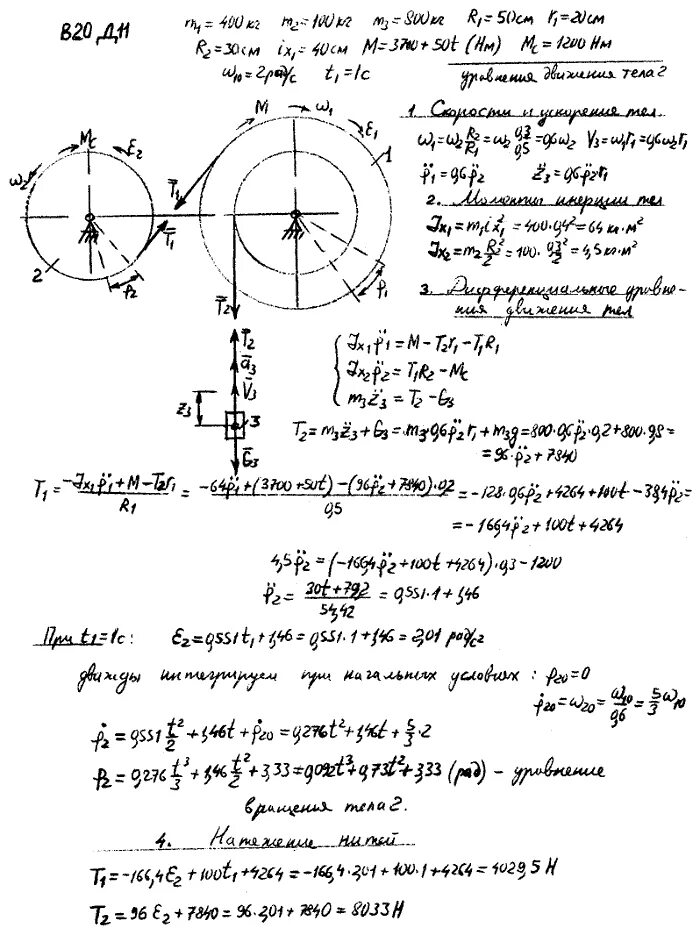 В20 Д11
m₁ = 400кг m₂ = 100кг m₃ = 800кг R₁ = 50см r₁ = 20см
R₂ = 30см ix₁ = 40см M = 3700 + 50t (Нм) Mc = 1200 Нм
ω₁₀ = 2рад/с t₁ = 1с уравнения движения тела 2
1. Скорости и ускорения тел
ω₁ = ω₂ R₂/R₁ = ω₂ 0,3/0,5 = 0,6ω₂ V₃ = ω₁r₁ = 0,6ω₂r₁
φ̈₁ = 0,6φ̈₂ z̈₃ = 0,6φ̈₂r₁
2. Моменты инерции тел
Jx₁ = m₁ix₁² = 400·0,4² = 64 кг·м²
Jx₂ = m₂ R₂²/2 = 100· 0,3²/2 = 4,5 кг·м²
3. Дифференциальные уравне-
ния движения тел
Mc ε₂ ω₂ M ω₁ ε₁ 1
T̅₁ T̅₁ 2 φ₂ φ₁
T̅₂
T̅₂
a̅₃
V̅₃
z₃ 3
G̅₃
Jx₁φ̈₁ = M − T₂r₁ − T₁R₁
Jx₂φ̈₂ = T₁R₂ − Mc
m₃z̈₃ = T₂ − G₃
T₂ = m₃z̈₃ + G₃ = m₃·0,6φ̈₂r₁ + m₃g = 800·0,6φ̈₂·0,2 + 800·9,8 =
= 96·φ̈₂ + 7840
T₁ = (−Jx₁φ̈₁ + M − T₂r₁)/R₁ = (−64φ̈₁ + (3700 + 50t) − (96φ̈₂ + 7840)·0,2)/0,5 = −128·0,6φ̈₂ + 4264 + 100t − 38,4φ̈₂ =
= −166,4φ̈₂ + 100t + 4264
4,5φ̈₂ = (−166,4φ̈₂ + 100t + 4264)·0,3 − 1200
φ̈₂ = (30t + 79,2)/54,42 = 0,551·1 + 1,46
При t₁ = 1с: ε₂ = 0,551t₁ + 1,46 = 0,551·1 + 1,46 = 2,01 рад/с²
дважды интегрируем при начальных условиях: φ₂₀ = 0
φ̇₂₀ = ω₂₀ = ω₁₀/0,6 = 5/3 ω₁₀
φ̇₂ = 0,551 t²/2 + 1,46t + φ̇₂₀ = 0,276t² + 1,46t + 5/3·2
φ₂ = 0,276 t³/3 + 1,46 t²/2 + 3,33 = 0,092t³ + 0,73t² + 3,33 (рад) – уравнение
вращения тела 2.
4. Натяжение нитей
T₁ = −166,4ε₂ + 100t₁ + 4264 = −166,4·2,01 + 100·1 + 4264 = 4029,5 Н
T₂ = 96ε₂ + 7840 = 96·2,01 + 7840 = 8033 Н